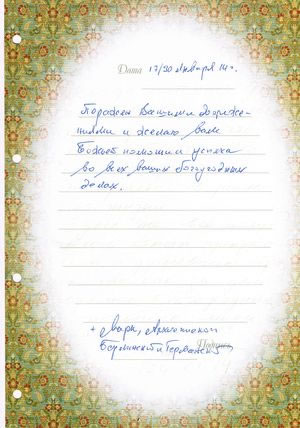 Дата 17/30 января 14 г.
Поражен Вашими достиже-
ниями и желаю вам
Божией помощи и успеха
во всех ваших богоугодных
делах.
+ Марк, Архиепископ
Берлинский и Германский
Подпись